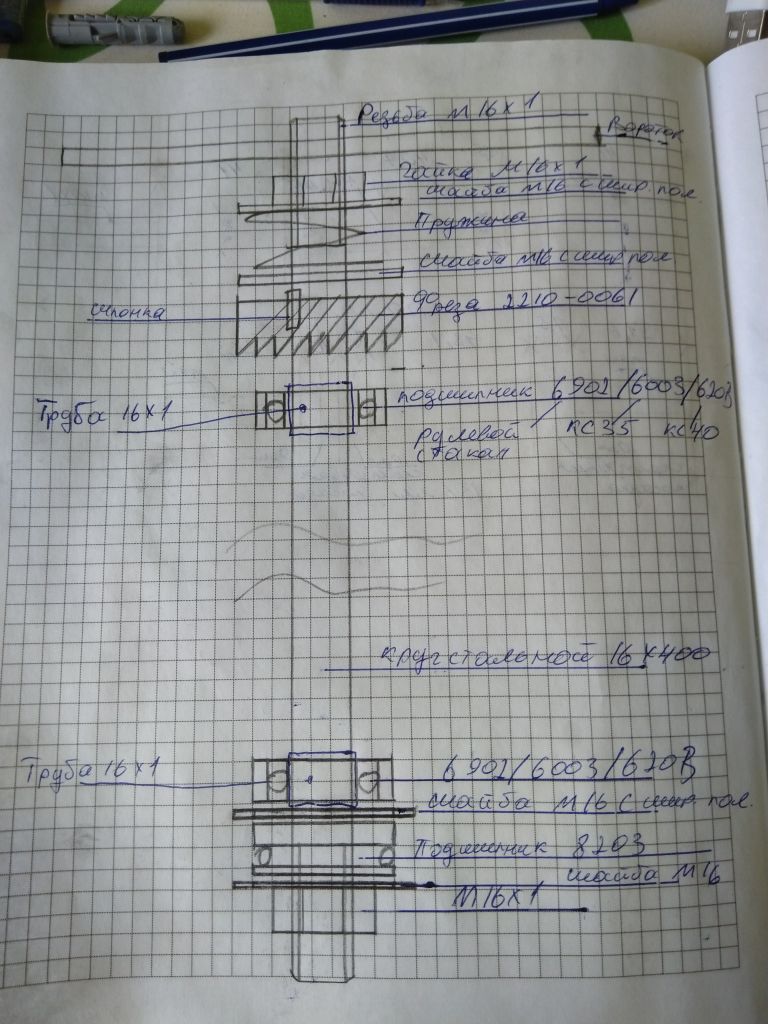 Резьба М16х1
Вороток
Гайка М16х1
шайба М16 с шир. пол.
Пружина
шайба М16 с шир пол
шпонка
Фреза 2210-0061
Труба 16х1
подшипник 6902/6003/6203
рулевой стакан
КС35
КС40
круг стальной 16х400
Труба 16х1
6902/6003/6203
шайба М16 с шир. пол.
Подшипник 8203
шайба М16
М16х1